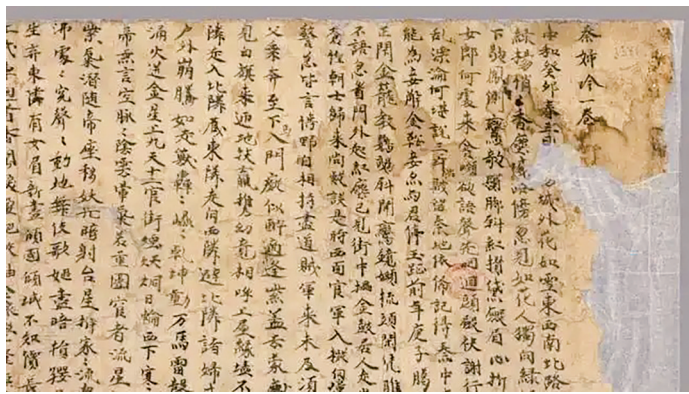 秦婦吟一卷
中和癸卯春三月 城外花如雪東西南北路
綠楊悄悄香塵滅路傍忽見如花人獨向綠
下歇鳳側鸞欹鬢腳斜紅攢黛斂眉心折
女郎何處來含嚬欲語聲先咽迴頭斂袂謝行
亂漂淪何堪說三年陷賊留秦地依俙記得秦中
能為妾解金鞍妾亦與君停玉趾前年庚子臈
正閇金籠教鸚鵡斜開鸞鏡嬾梳頭閑凭雕
不語忽看門外起紅塵已見街中擂金鼓居人走出
朝士歸來尚疑誤是時西面官軍入擬向潼
警急皆言博野自相持盡道賊軍來未及須
父乘奔至下馬入門癡似醉適逢紫蓋去蒙塵
見白旗來迊地扶羸携幼競相呼上屋緣墻不
隣走入北隣藏東隣走向西隣避北隣諸婦
戶外崩騰如走獸轟〻崐〻乾坤動万馬雷聲
湧火迸金星上九天十二官街煙烘烔日輪西下寒
帝無言空脉〻陰雲暈氣若重圍宦者流星
紫氣潛隨帝座移妖光暗射台星拆家〻流
沸處〻冤聲〻動地舞伎歌姬盡暗損嬰
生弃東隣有女眉新畫傾國傾城不知價長